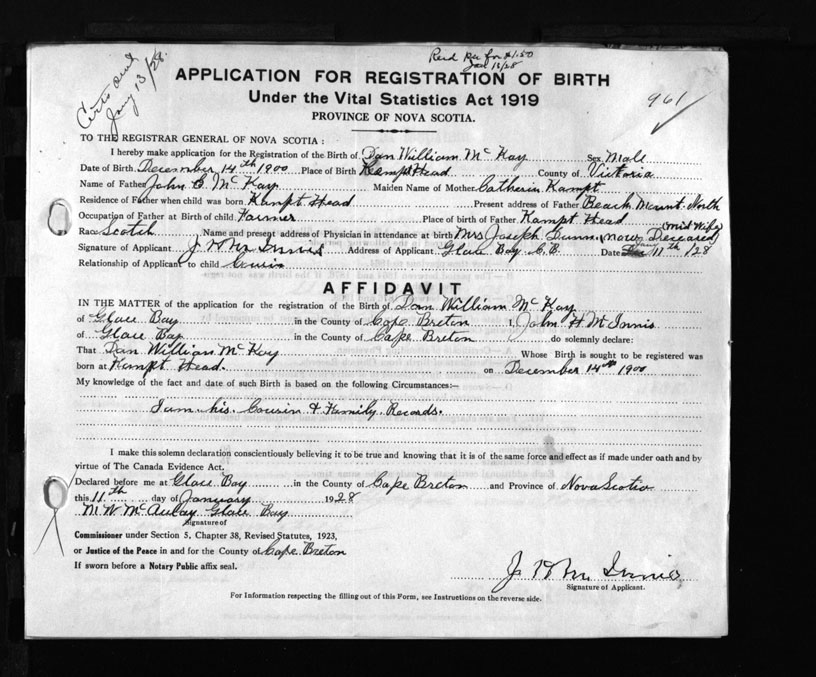 Certs and
Jany 13/28.
Recd Pee for $1.50
Jan 13/28
961
APPLICATION FOR REGISTRATION OF BIRTH
Under the Vital Statistics Act 1919
PROVINCE OF NOVA SCOTIA.
TO THE REGISTRAR GENERAL OF NOVA SCOTIA :
I hereby make application for the Registration of the Birth of Dan William McKay Sex Male
Date of Birth December 14th 1900 Place of Birth Kempt Head County of Victoria
Name of Father John C. McKay Maiden Name of Mother Catherin Kampt
Residence of Father when child was born Kampt Head Present address of Father Beach Mount North
Occupation of Father at Birth of child Farmer Place of birth of Father Kampt Head
Race Scotch Name and present address of Physician in attendance at birth Mrs Joseph Dunn (now Deceased) (Mid Wife)
Signature of Applicant J H McInnis Address of Applicant Glace Bay C.B. Date Jany 11th /28
Relationship of Applicant to child Cousin
AFFIDAVIT
IN THE MATTER of the application for the registration of the Birth of Dan William McKay
of Glace Bay in the County of Cape Breton I, John H McInnis
of Glace Bay in the County of Cape Breton do solemnly declare:
That Dan William McKay Whose Birth is sought to be registered was
born at Kampt Head. on December 14th 1900
My knowledge of the fact and date of such Birth is based on the following Circumstances:—
I am his Cousin & Family Records.
I make this solemn declaration conscientiously believing it to be true and knowing that it is of the same force and effect as if made under oath and by
virtue of The Canada Evidence Act.
Declared before me at Glace Bay in the County of Cape Breton and Province of Nova Scotia
this 11th day of January 1928
M. W. McAulay Glace Bay
Signature of
Commissioner under Section 5, Chapter 38, Revised Statutes, 1923,
or Justice of the Peace in and for the County of Cape Breton
If sworn before a Notary Public affix seal.
J H McInnis
Signature of Applicant.
For Information respecting the filling out of this Form, see Instructions on the reverse side.